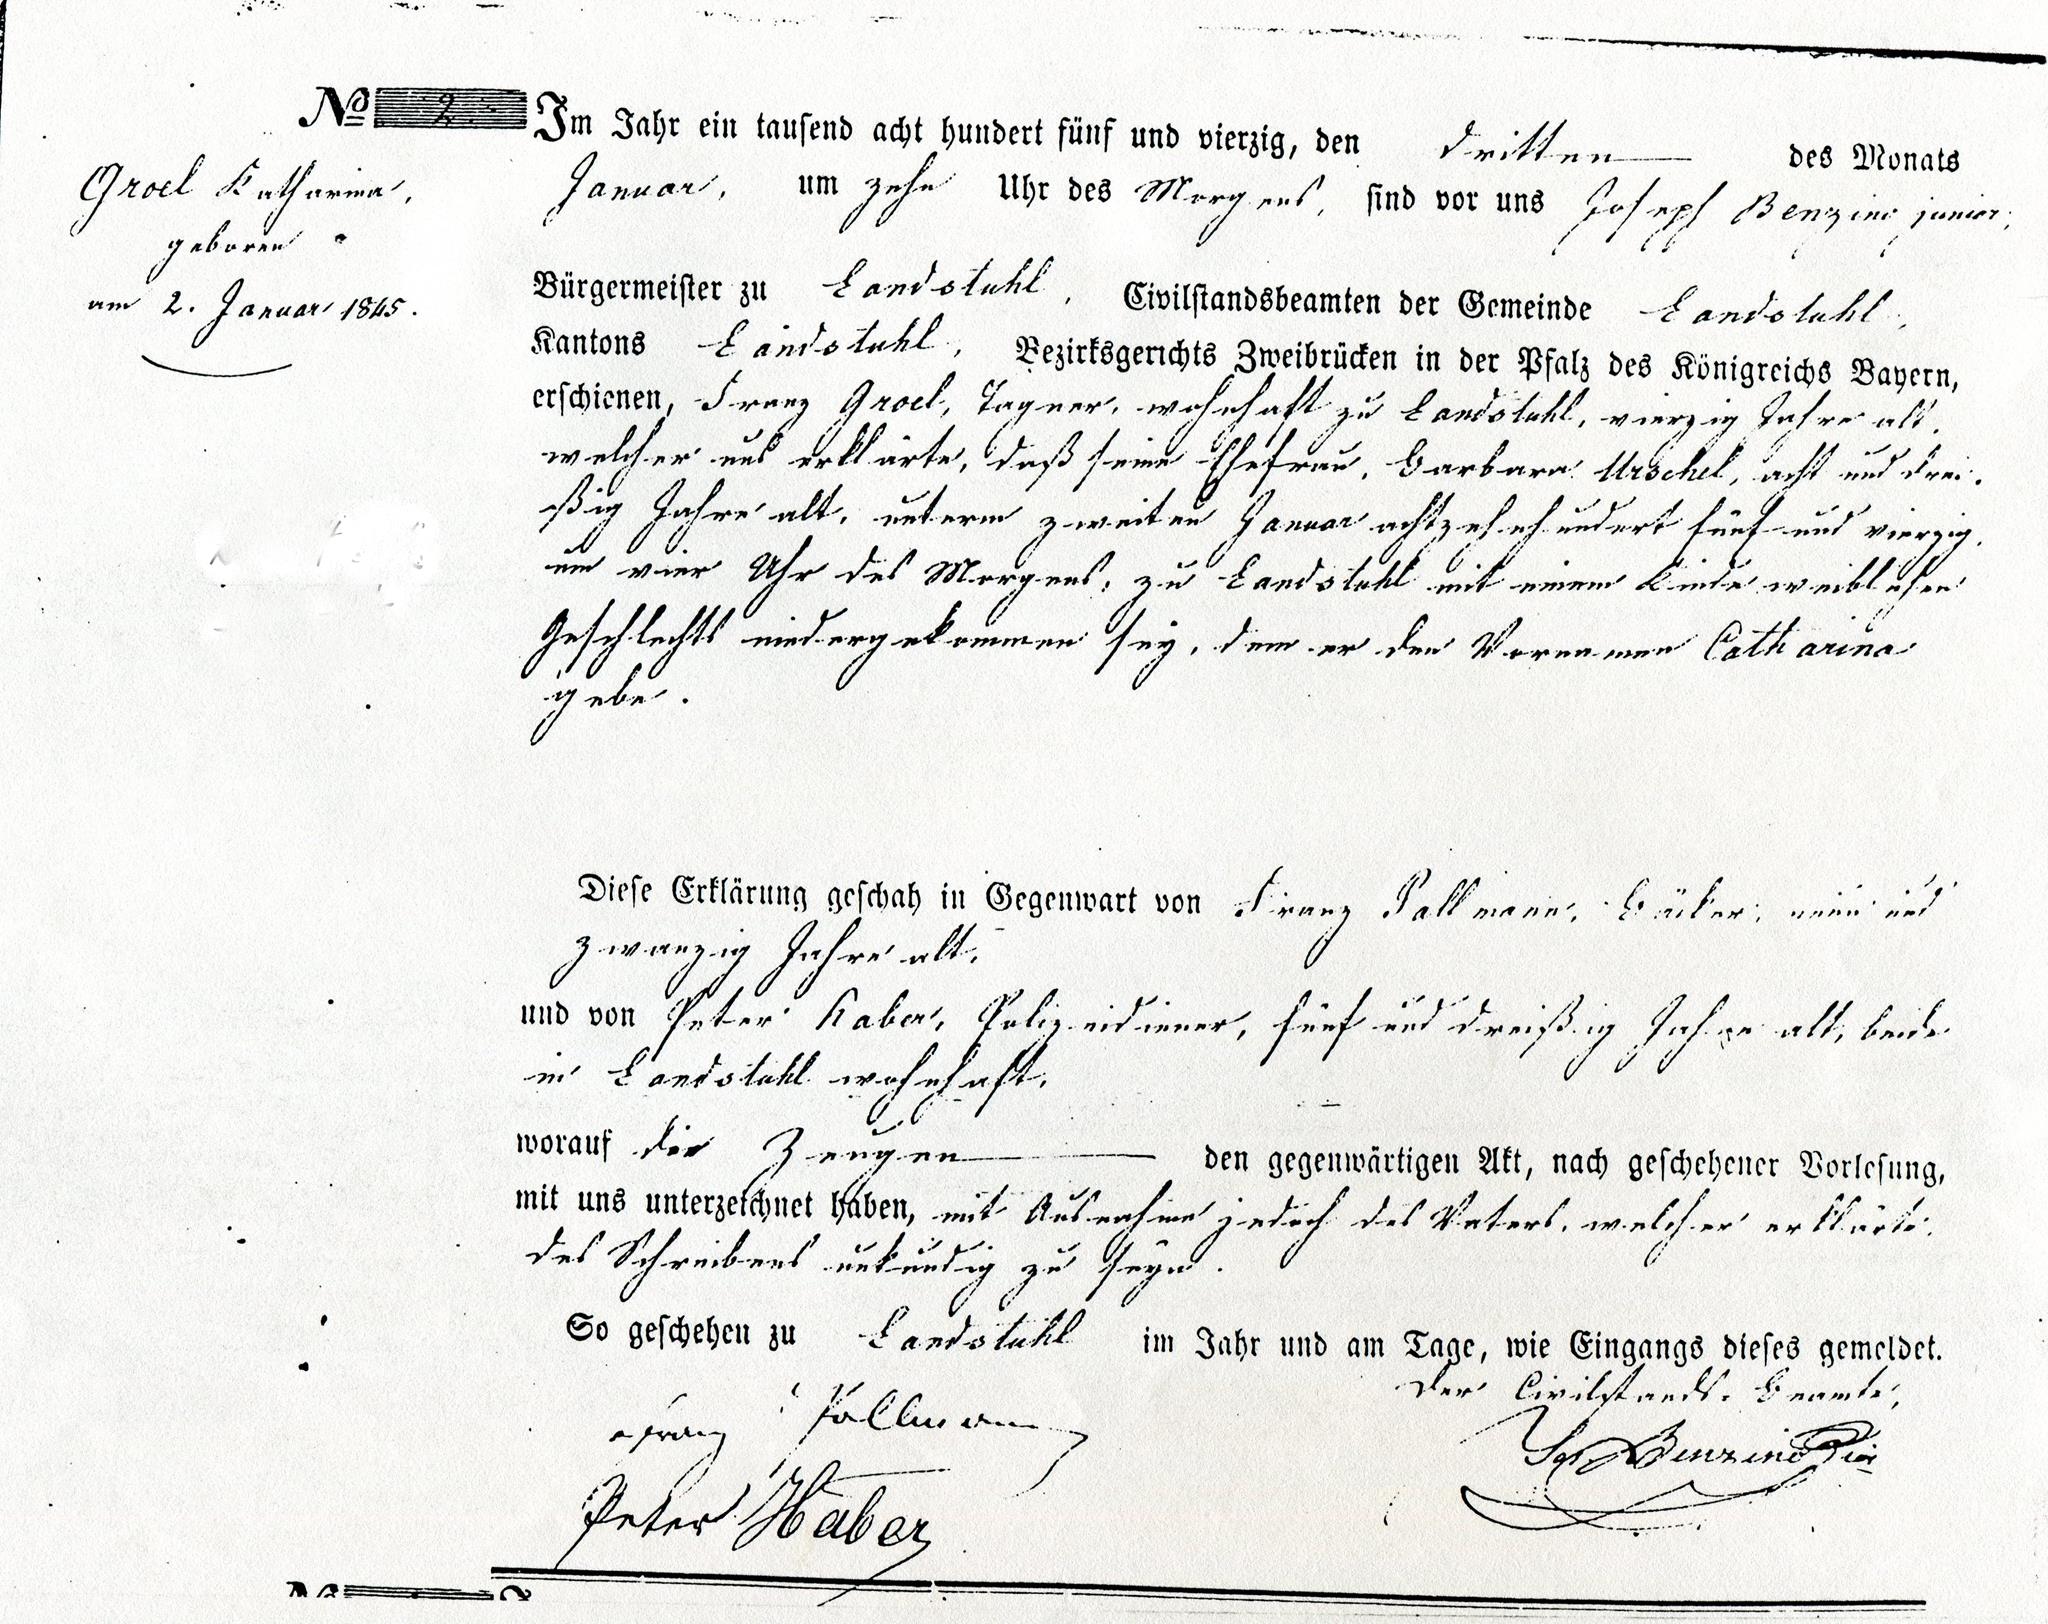 No 2
Groel Katharina,
geboren
am 2. Januar 1845.
Im Jahr ein tausend acht hundert fünf und vierzig, den dritten des Monats
Januar, um zehn Uhr des Morgens, sind vor uns Joseph Benzino junior,
Bürgermeister zu Landstuhl, Civilstandsbeamten der Gemeinde Landstuhl,
Kantons Landstuhl, Bezirksgerichts Zweibrücken in der Pfalz des Königreichs Bayern,
erschienen, Franz Groel, Tagner, wohnhaft zu Landstuhl, vierzig Jahre alt,
welcher uns erklärte, daß seine Ehefrau, Barbara Urschel, acht und drei-
ßig Jahre alt, unterm zweiten Januar achtzehnhundert fünf und vierzig,
um vier Uhr des Morgens, zu Landstuhl mit einem Kinde weiblichen
Geschlechts niedergekommen sey, dem er den Vornamen Catharina
gebe.
Diese Erklärung geschah in Gegenwart von Franz Pallmann, Bäcker, neun und
zwanzig Jahre alt,
und von Peter Haber, Polizeidiener, fünf und dreißig Jahre alt, beide
in Landstuhl wohnhaft,
worauf die Zeugen den gegenwärtigen Akt, nach geschehener Vorlesung,
mit uns unterzeichnet haben, mit Ausnahme jedoch des Vaters, welcher erklärte,
des Schreibens unkundig zu seyn.
So geschehen zu Landstuhl im Jahr und am Tage, wie Eingangs dieses gemeldet.
Der Civilstands-Beamte,
Franz Pallmann
Jos Benzino Jior
Peter Haber